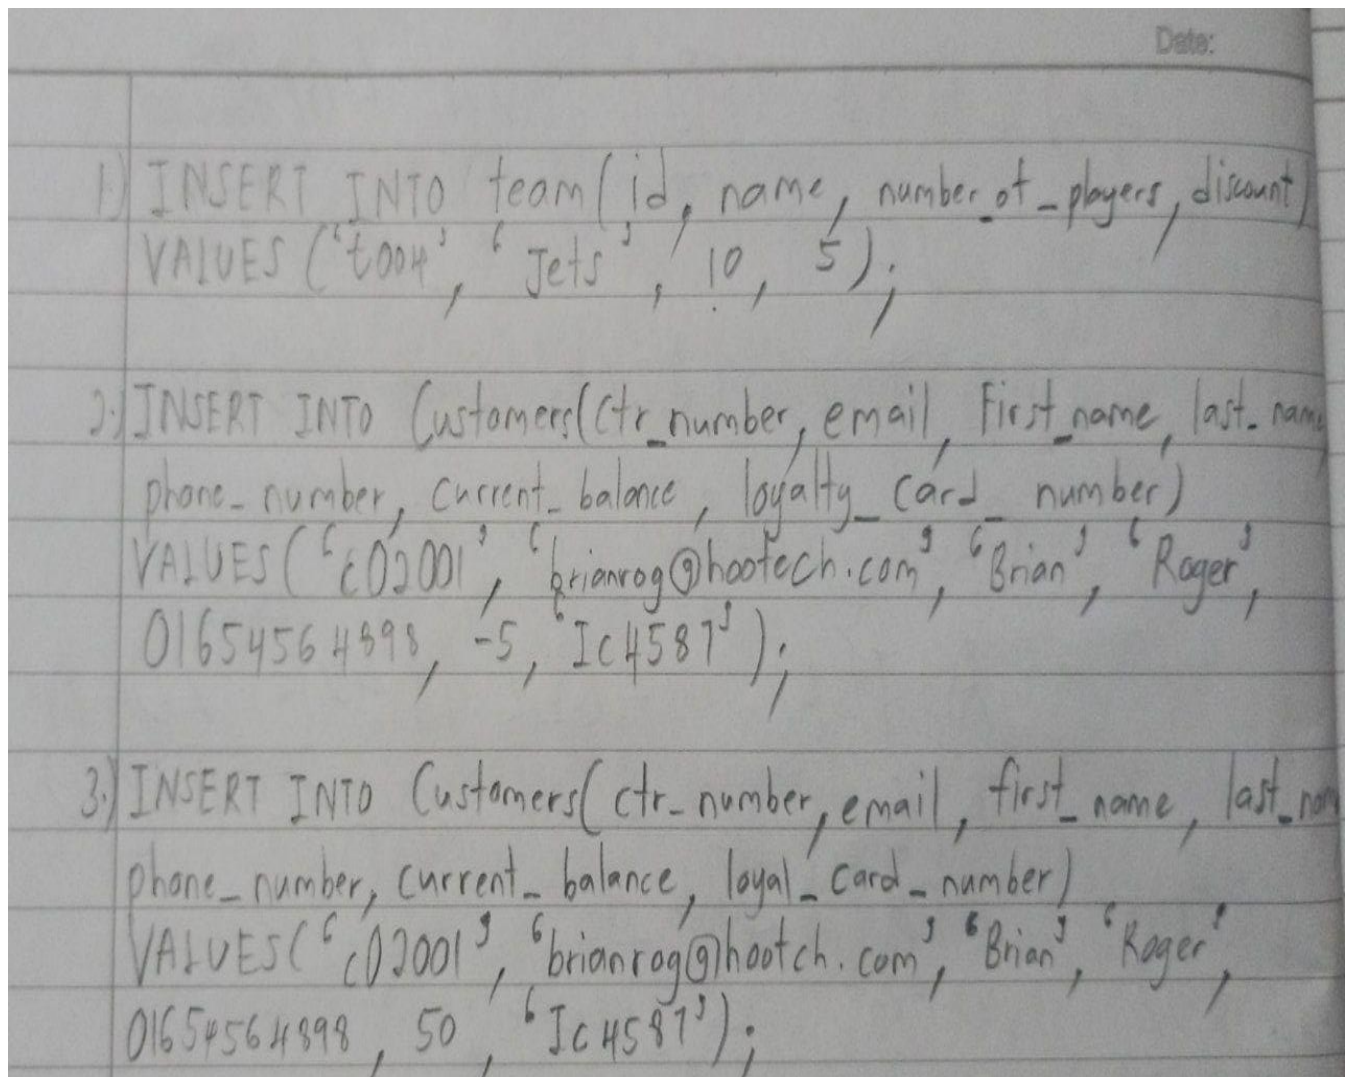 Date:
1.) INSERT INTO team(id, name, number_of_players, discount)
VALUES (‘t004’, ‘Jets’, 10, 5);
2.) INSERT INTO Customers(ctr_number, email, First_name, last_name
phone_number, current_balance, loyalty_card_number)
VALUES(‘c02001’, ‘brianrog@hootech.com’, ‘Brian’, ‘Roger’,
01654564898, -5, ‘Ic4587’);
3.) INSERT INTO Customers(ctr_number, email, first_name, last_name
phone_number, current_balance, loyal_card_number)
VALUES(‘c02001’, ‘brianrog@hootch.com’, ‘Brian’, ‘Roger’,
01654564898, 50, ‘Ic4587’);